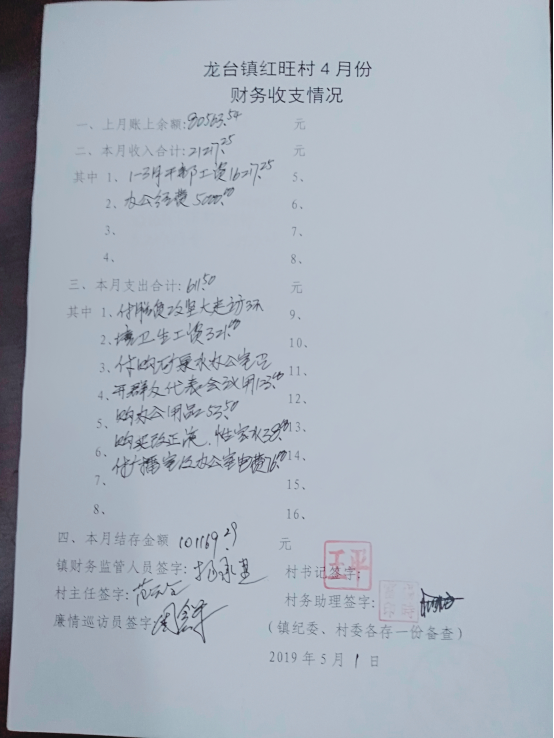 龙台镇红旺村 4 月份
财务收支情况
一、上月账上余额:80563.54 元
二、本月收入合计:21217.25 元
其中 1、1-3月干部工资16217.25 5、
2、办公经费5000.00 6、
3、 7、
4、 8、
三、本月支出合计:611.50 元
其中 1、付脱贫攻坚大走访3天 9、
2、搞卫生工资321.00 10、
3、付购矿泉水办公室卫 11、
4、开群众代表会议用123.00 12、
5、购办公用品53.50 13、
6、购买改正液、38.00 14、
7、付广播室及办公室电费76.00 15、
8、 16、
四、本月结存金额 101169.29 元
镇财务监管人员签字: 村书记签字:
村主任签字: 村务助理签字:
廉情巡访员签字
(镇纪委、村委各存一份备查)
2019 年 5 月 1 日